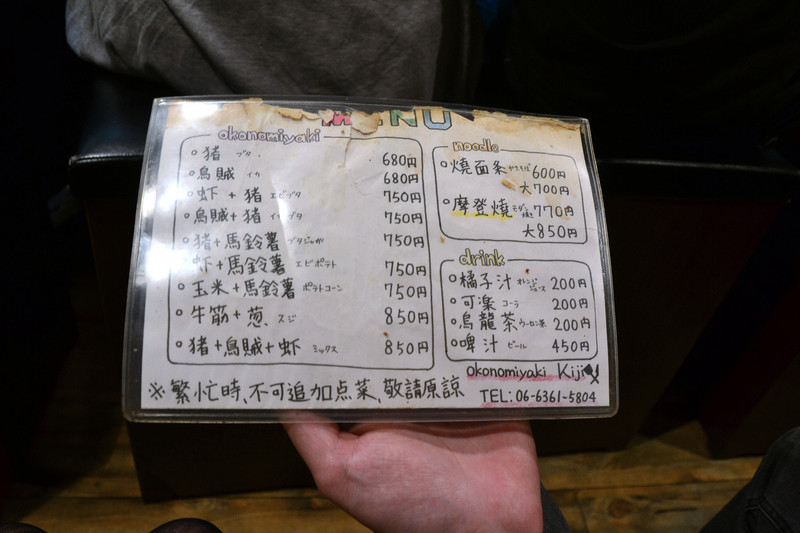 MENU
okonomiyaki
猪 ブタ 680円
烏賊 イカ 680円
虾+猪 エビブタ 750円
烏賊+猪 イカブタ 750円
猪+馬鈴薯 ブタジャガ 750円
虾+馬鈴薯 エビポテト 750円
玉米+馬鈴薯 ポテトコーン 750円
牛筋+葱 スジ 850円
猪+烏賊+虾 ミックス 850円
noodle
燒面条 やきそば 600円
大700円
摩登燒 モダン焼 770円
大850円
drink
橘子汁 オレンジジュース 200円
可楽 コーラ 200円
烏龍茶 ウーロン茶 200円
啤汁 ビール 450円
okonomiyaki Kiji
TEL:06-6361-5804
※繁忙時、不可追加点菜、敬請原諒